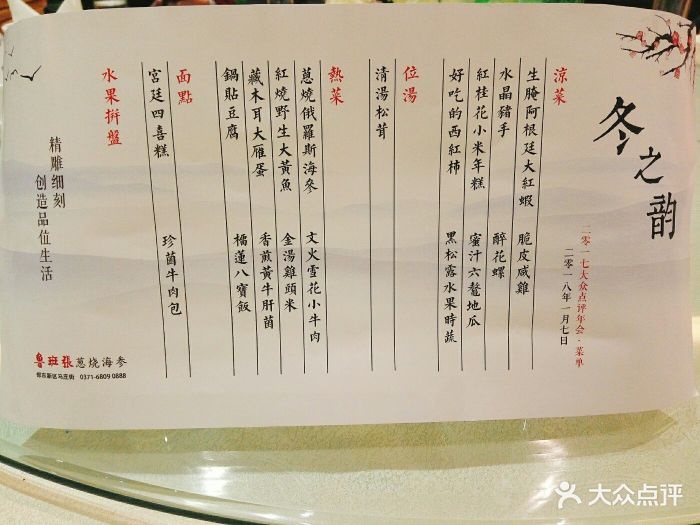 冬之韵
二零一七大众点评年会·菜单
二零一八年一月七日
涼菜
生腌阿根廷大紅蝦 脆皮咸雞
水晶豬手 醉花螺
紅桂花小米年糕 蜜汁六鰲地瓜
好吃的西紅柿 黑松露水果時蔬
位湯
清湯松茸
熱菜
蔥燒俄羅斯海參 文火雪花小牛肉
紅燒野生大黃魚 金湯雞頭米
藏木耳大雁蛋 香煎黃牛肝菌
鍋貼豆腐 橘蓮八寶飯
面點
宮廷四喜糕 珍菌牛肉包
水果拼盤
精雕细刻
创造品位生活
魯班張蔥烧海参
郑东新区马庄街 0371-6809 0888
大众点评